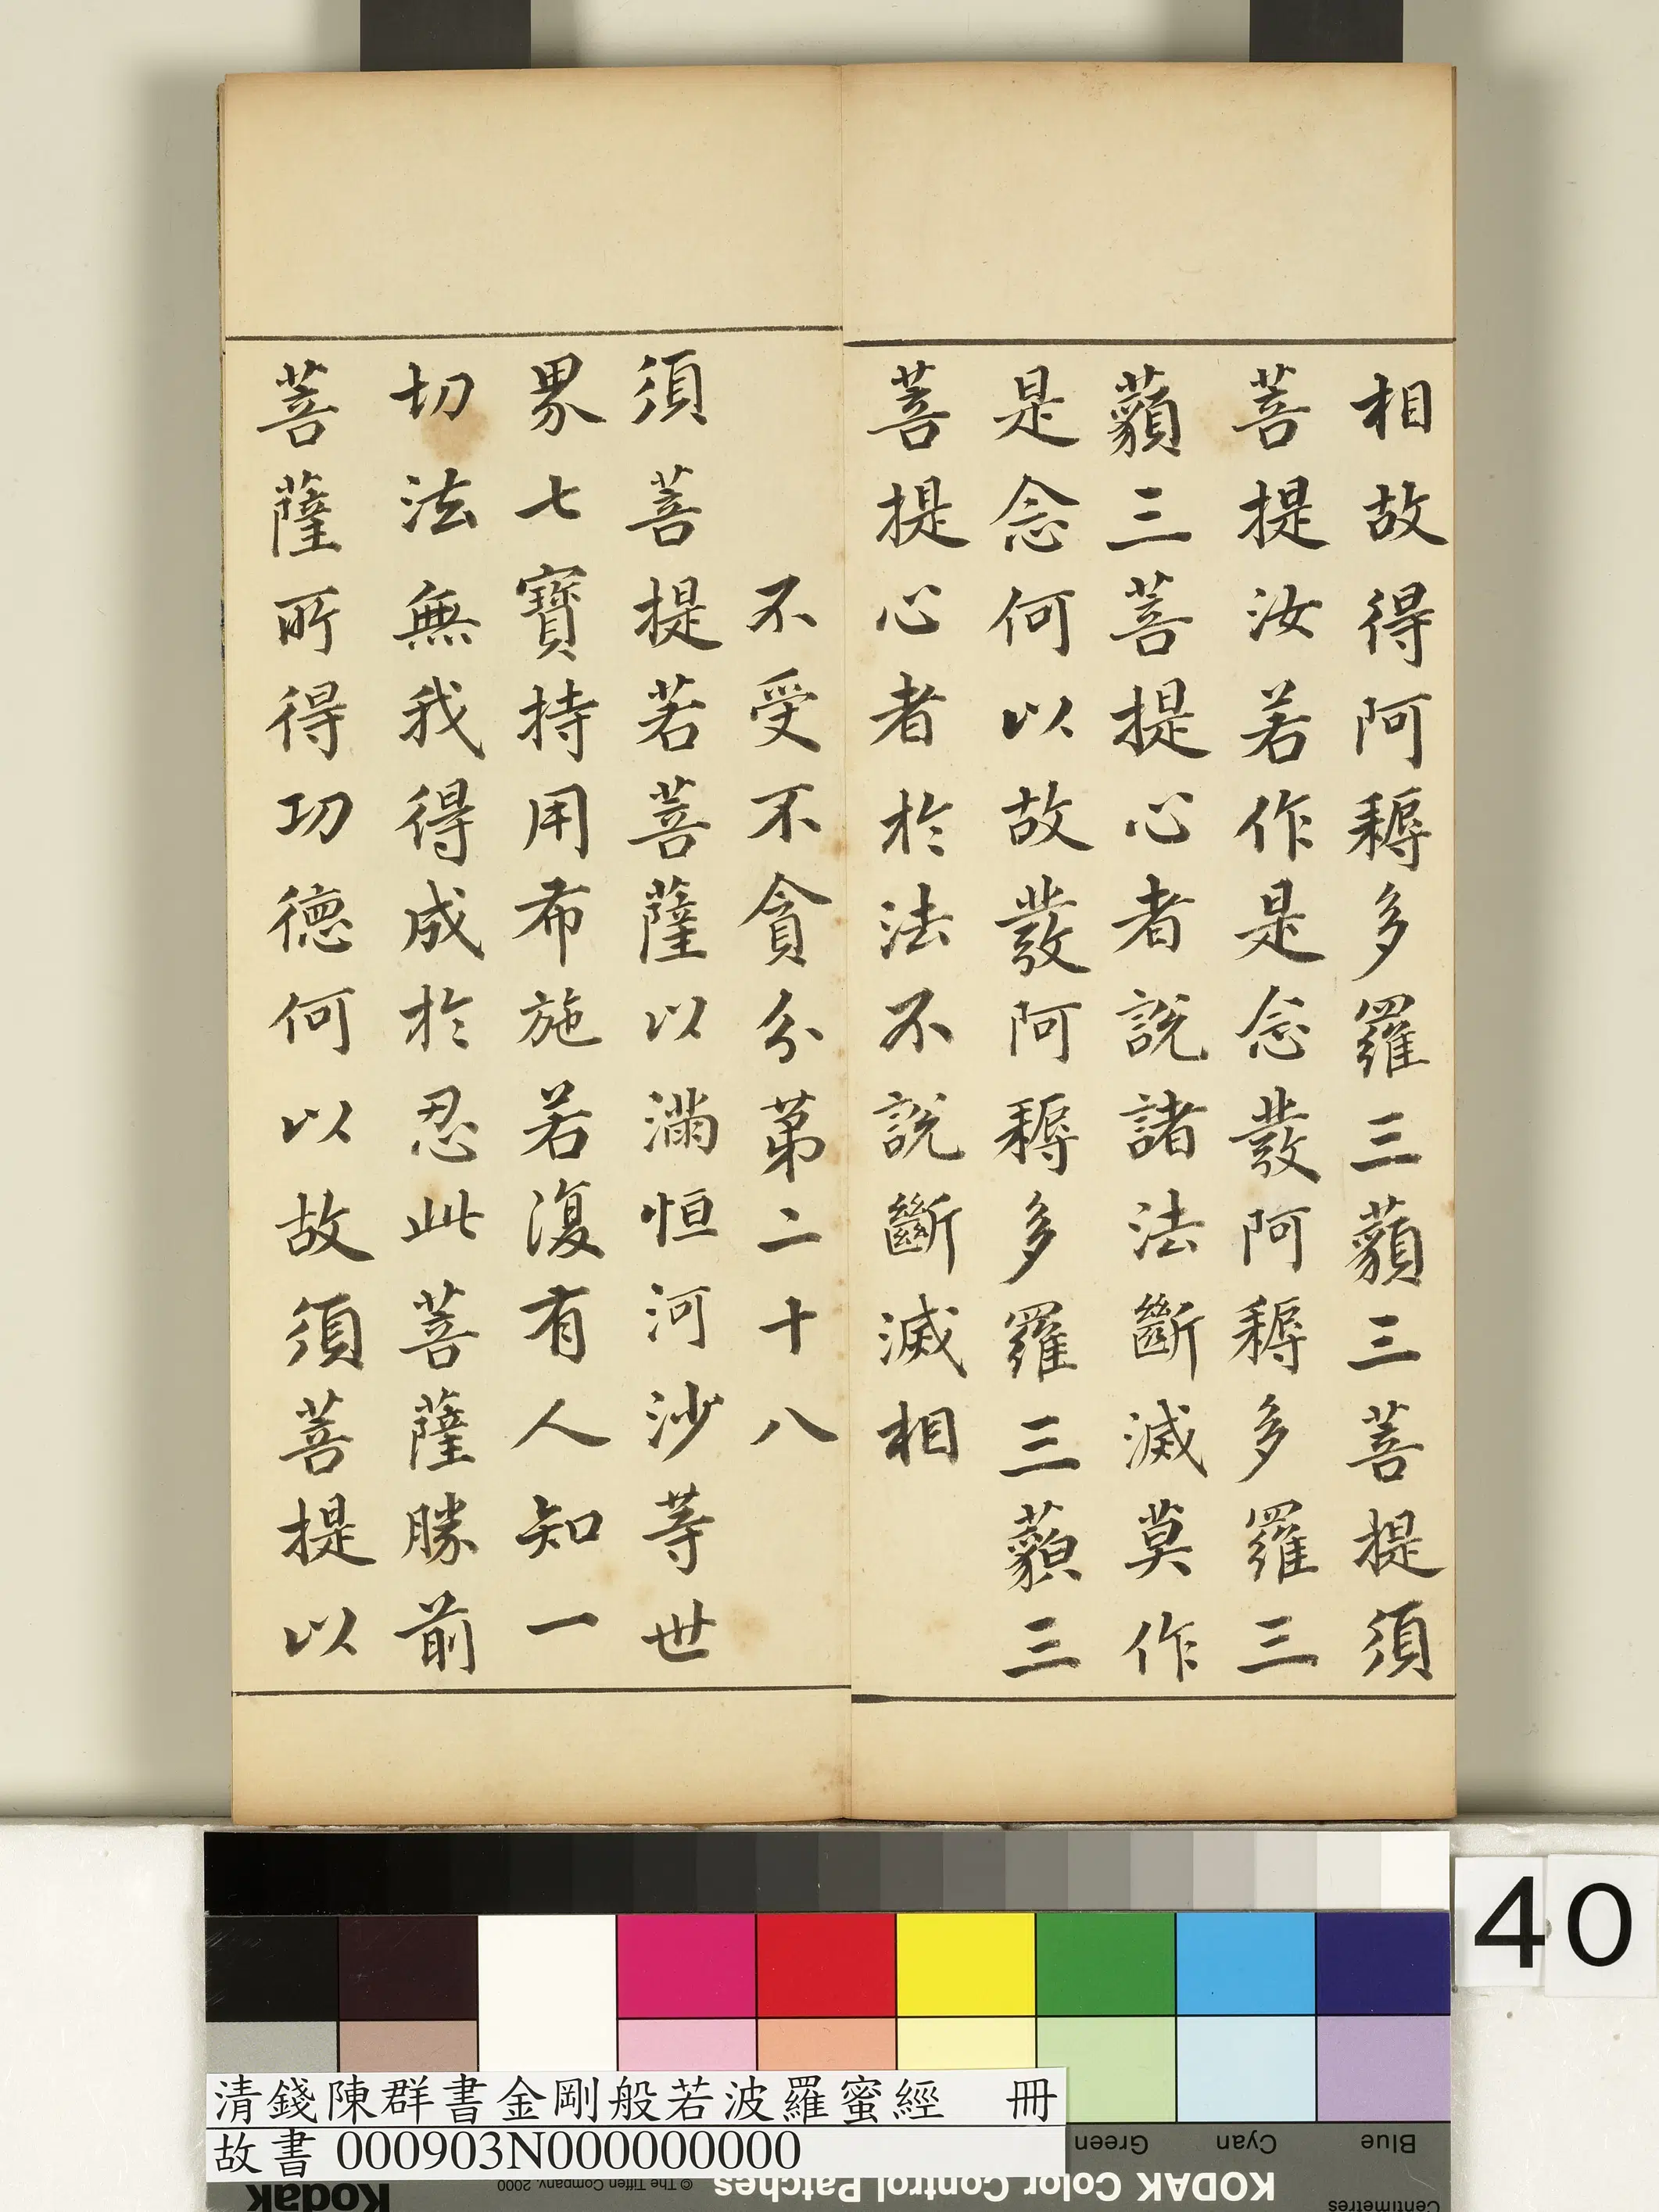 相故得阿耨多羅三藐三菩提須
菩提汝若作是念發阿耨多羅三
藐三菩提心者說諸法斷滅莫作
是念何以故發阿耨多羅三藐三
菩提心者於法不說斷滅相
不受不貪分第二十八
須菩提若菩薩以滿恒河沙等世
界七寶持用布施若復有人知一
切法無我得成於忍此菩薩勝前
菩薩所得功德何以故須菩提以
40
清錢陳群書金剛般若波羅蜜經 冊
故書 000903N000000000
Green Cyan Blue
Kodak © The Tiffen Company, 2000 KODAK Color Control Patches Centimetres